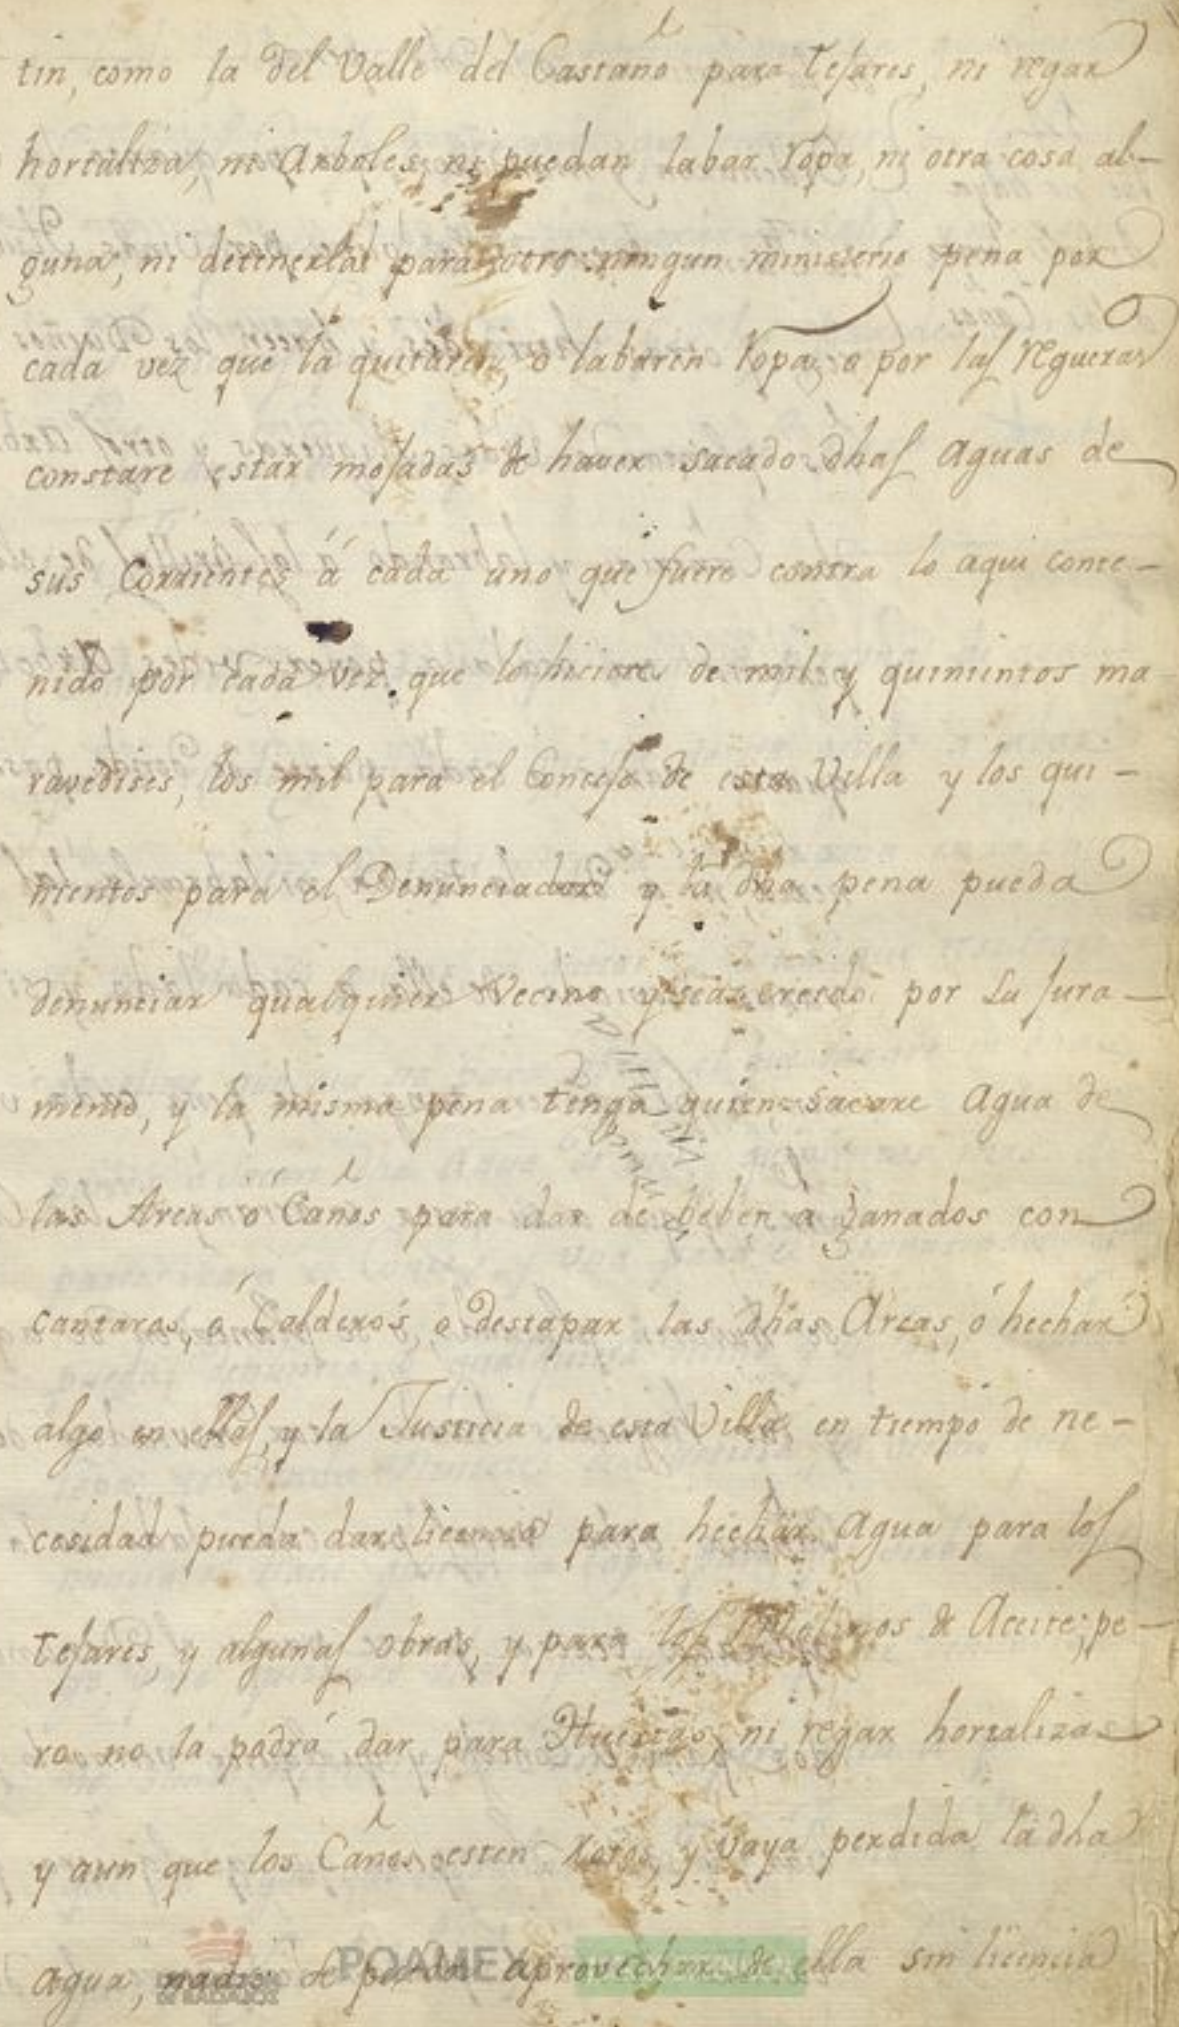 tin, como la del Valle del Castaño para tejares, ni regar
hortaliza, ni Arboles, ni puedan labar ropa, ni otra cosa al-
guna, ni detenerlas para otro ningun ministerio pena por
cada vez que la quitaren, o labaren ropa, o por las regueras
constare estar mojadas de haver sacado dhas Aguas de
sus Corrientes á cada uno que fuere contra lo aqui conte-
nido por cada vez que lo hiciere de mil y quinientos ma
ravedises, los mil para el Concejo de esta Villa y los qui-
nientos para el Denunciador y la dha pena pueda
denunciar qualquier Vecino y sea creido por su jura-
mento, y la misma pena tenga quien sacare Agua de
las Arcas ó Caños para dar de beber a ganados con
cantaros, ó Calderos, o destapar las dhas Arcas, ó hechar
algo en ellas, y la Justicia de esta Villa en tiempo de ne-
cesidad pueda dar licencia para hechar Agua para los
tejares, y algunas obras, y para los Molinos de Aceite; pe-
ro no la podrá dar para Huertas, ni regar hortalizas
y aun que los Caños esten rotos, y vaya perdida la dha
agua, nadie se pueda aprovechar de ella sin licencia
POAMEX